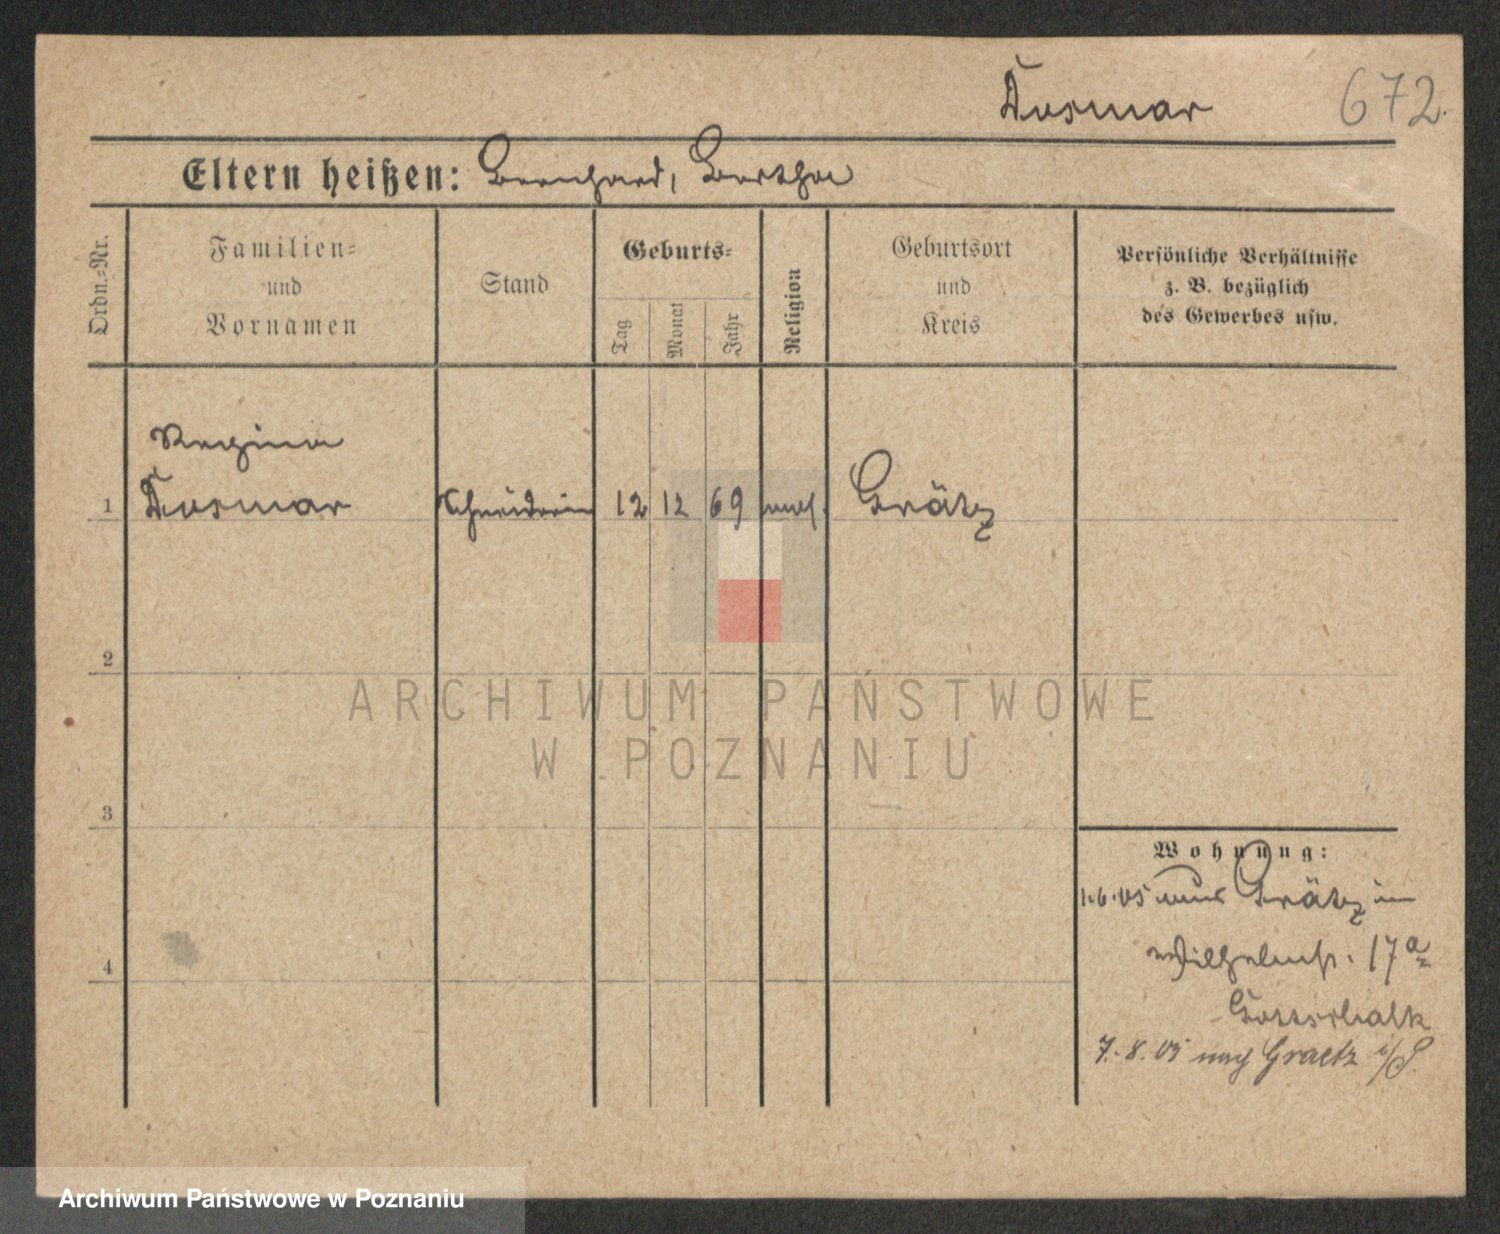 Kosmar 672.
Eltern heißen: Bernhard, Bertha
Ordn.=Nr.
Familien=
und
Vornamen
Stand
Geburts=
Tag
Monat
Jahr
Religion
Geburtsort
und
Kreis
Persönliche Verhältnisse
z. B. bezüglich
des Gewerbes usw.
Regina
1 Kosmar Schneiderin 12 12 69 mos. Grätz
2
3
4
Wohnung:
1.6.05 aus Grätz in
Wilhelmstr. 17a
Gottschalk
7.8.05 nach Graetz i/P.
ARCHIWUM PAŃSTWOWE
W POZNANIU
Archiwum Państwowe w Poznaniu